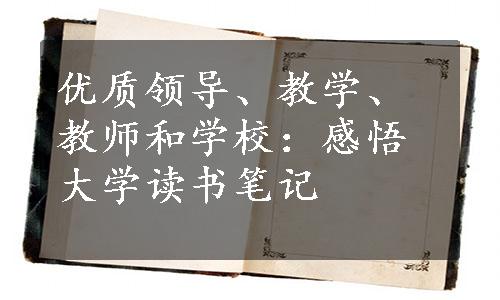 优质领导、教学、
教师和学校：感悟
大学读书笔记